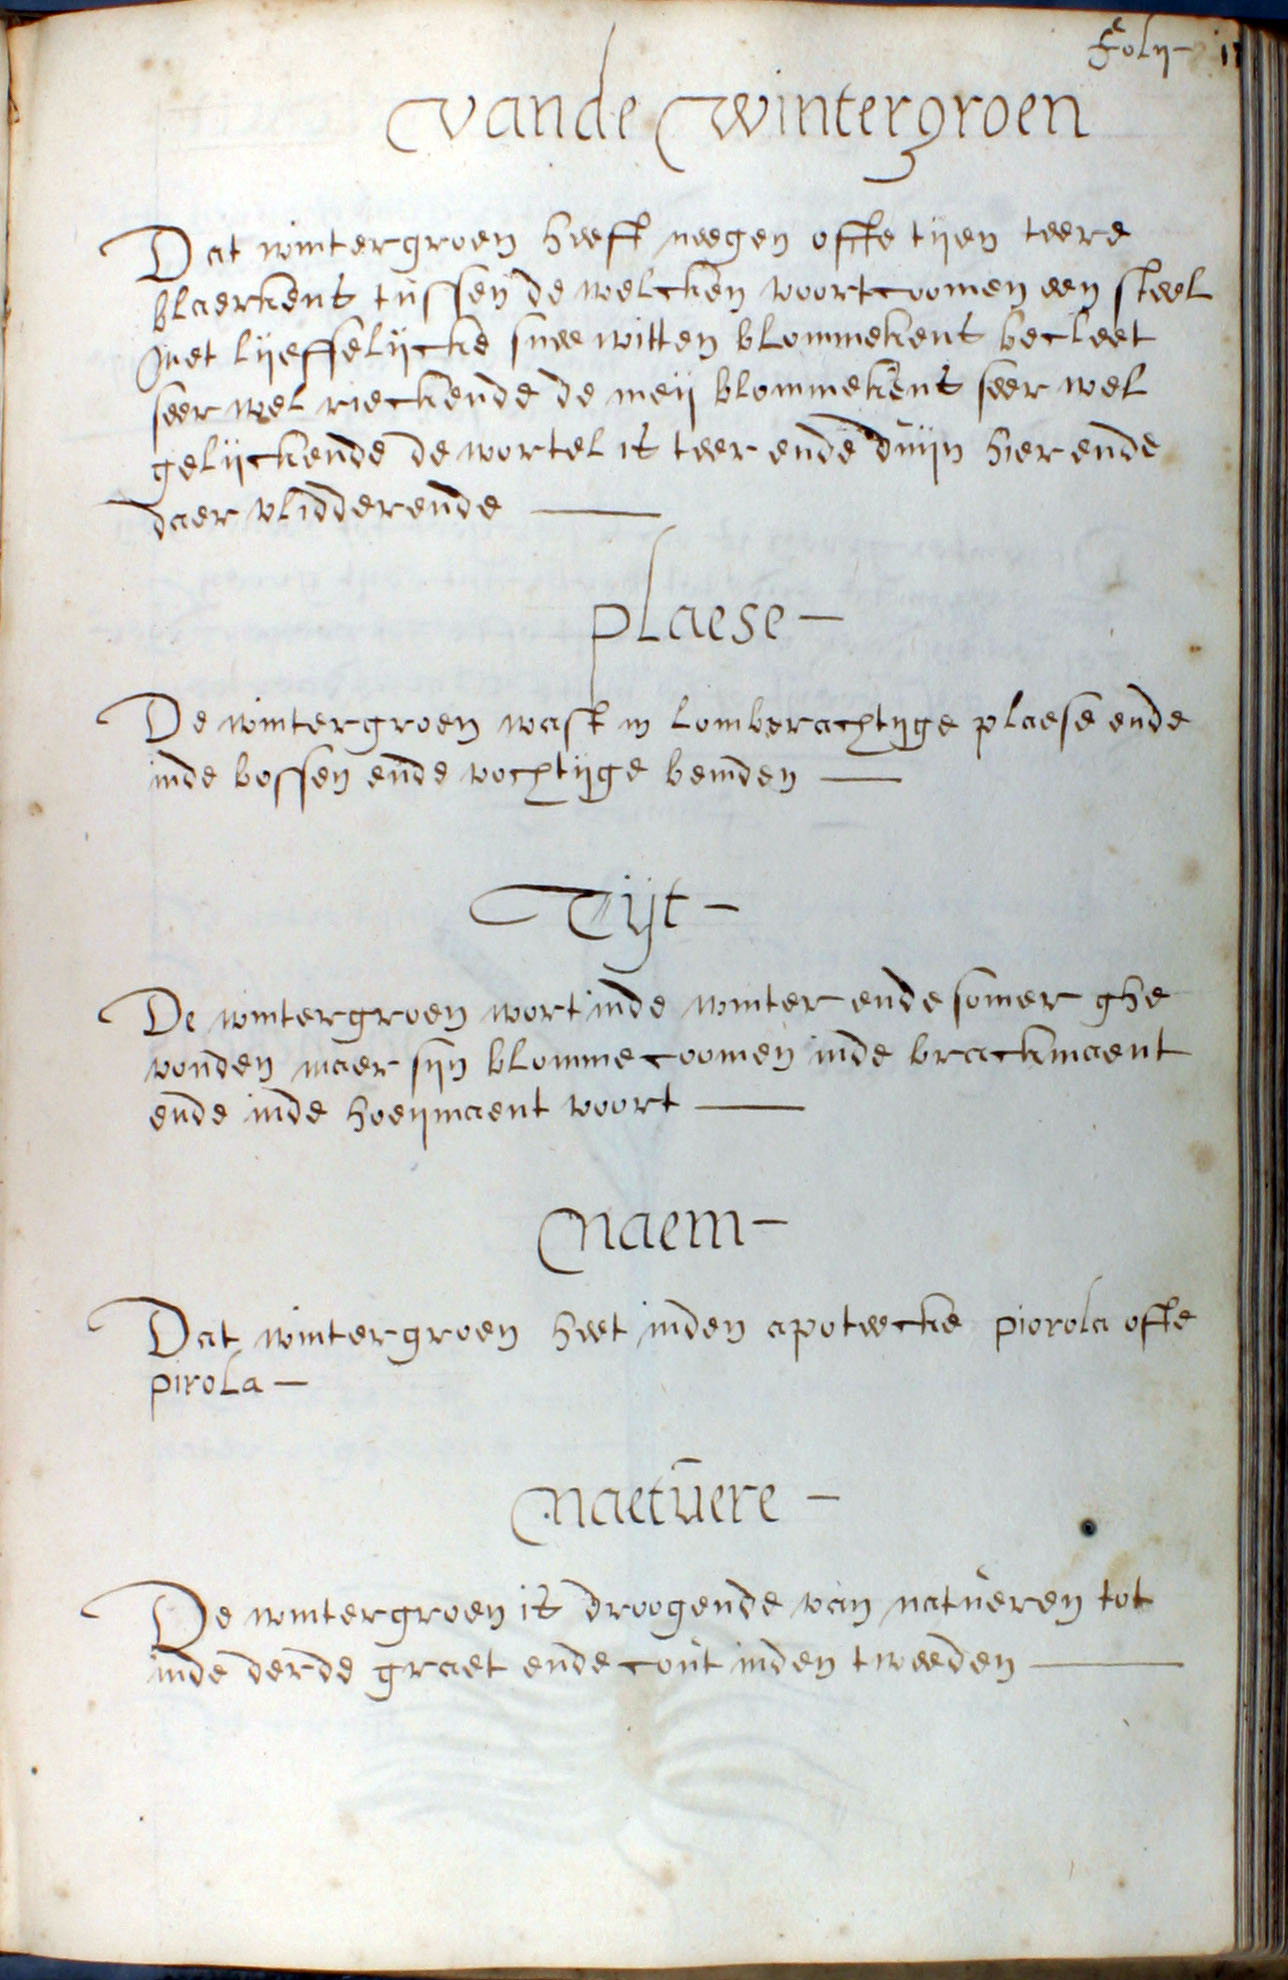 Folij - 17
Vande Wintergroen
Dat wintergroen heeft neegen offte tijen teere
blaerkens tussen de welcken voortcoomen een steel
met lijeffelijcke snee witten blommekens becleet
seer wel rieckende de meij blommekens seer wel
gelijckende de wortel is teer ende duijn hier ende
daer vlidderende —
Plaese -
De wintergroen wast in lomberachtijge plaese ende
inde bossen ende vochtijge bemden —
Tijt -
De wintergroen wort inde winter ende somer ghe
vonden maer sijn blomme coomen inde brackmaent
ende inde hoeijmaent voort —
Naem -
Dat wintergroen heet inden apoteecke piorola offte
pirola -
Naetuere -
De wintergroen is droogende van natueren tot
inde derde graet ende cout inden tweeden —